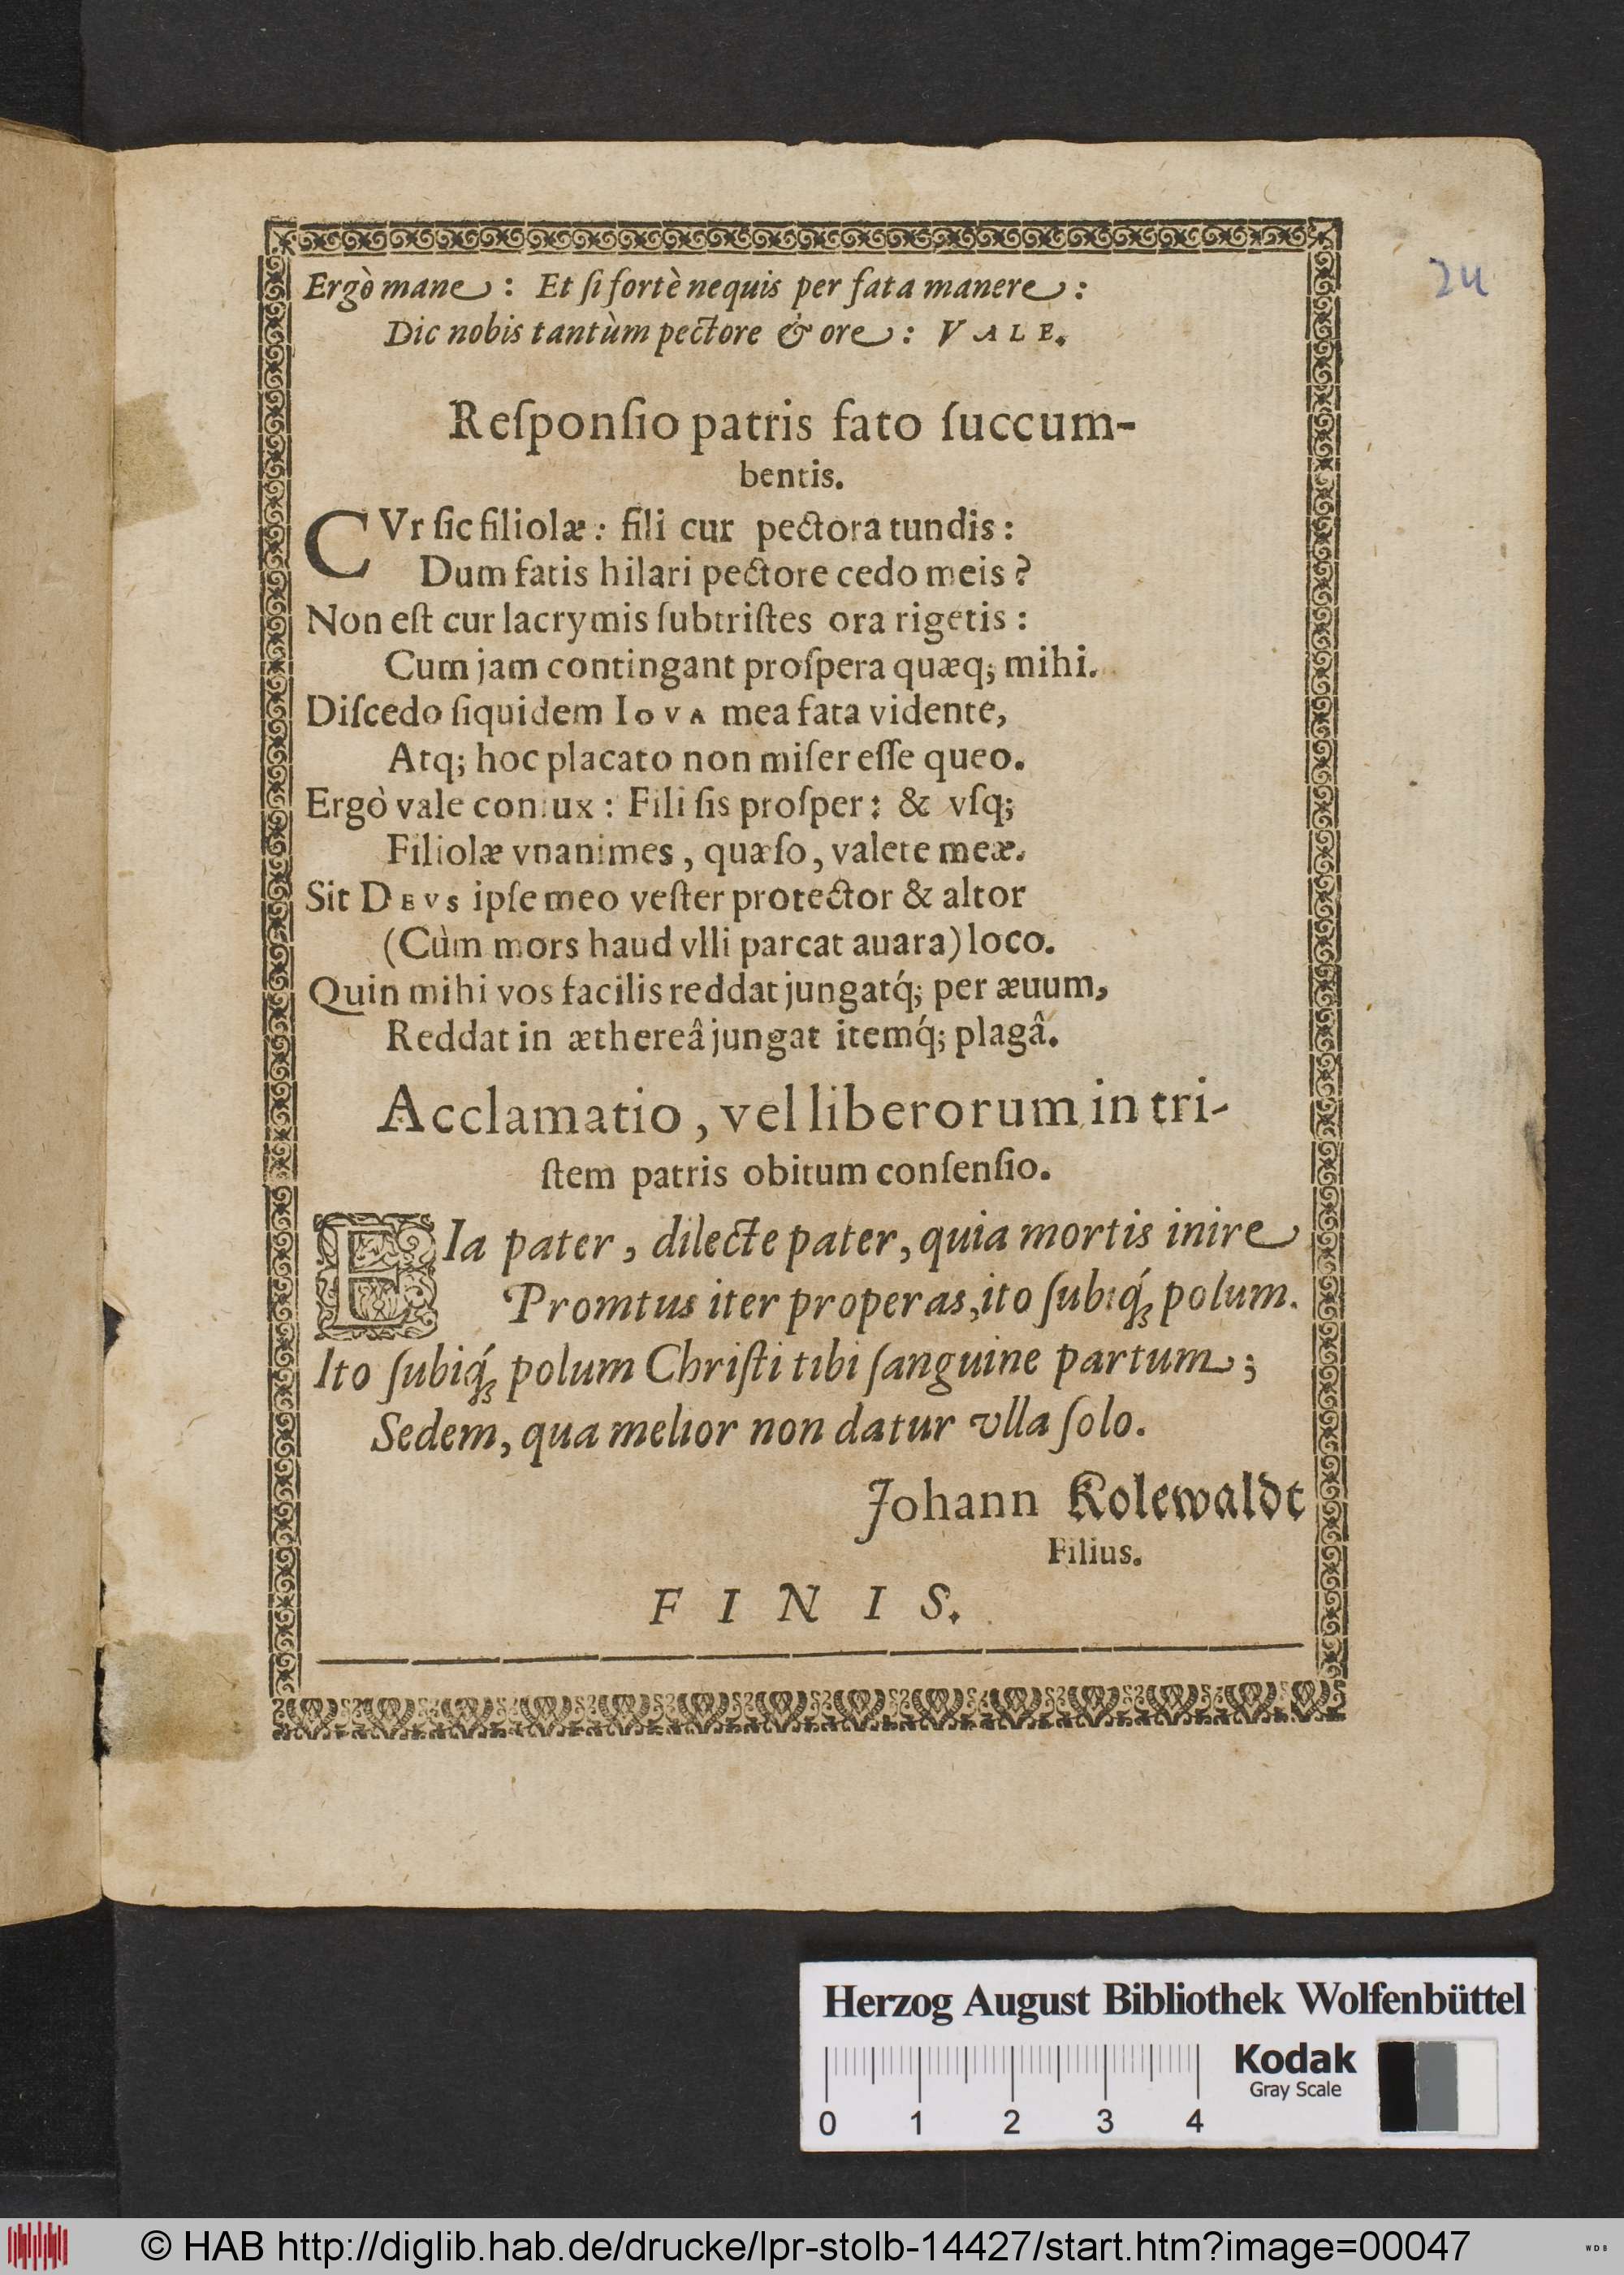 24
Ergò mane: Et ſi fortè nequis per fata manere:
Dic nobis tantùm pectore & ore: VALE.
Reſponſio patris fato ſuccum-
bentis.
CVr ſic filiolæ: fili cur pectora tundis:
Dum fatis hilari pectore cedo meis?
Non eſt cur lacrymis ſubtriſtes ora rigetis:
Cum jam contingant proſpera quæq; mihi.
Diſcedo ſiquidem IOVA mea fata vidente,
Atq; hoc placato non miſer eſſe queo.
Ergò vale coniux: Fili ſis proſper: & vſq;
Filiolæ vnanimes, quæſo, valete meæ.
Sit DEVS ipſe meo veſter protector & altor
(Cùm mors haud vlli parcat auara) loco.
Quin mihi vos facilis reddat jungatq́; per æuum,
Reddat in æthereâ jungat itemq́; plagâ.
Acclamatio, vel liberorum in tri-
ſtem patris obitum conſenſio.
EIa pater, dilecte pater, quia mortis inire
Promtus iter properas, ito ſubiq́; polum.
Ito ſubiq́; polum Chriſti tibi ſanguine partum;
Sedem, qua melior non datur vlla ſolo.
Johann Kolewaldt
Filius.
FINIS.
Herzog August Bibliothek Wolfenbüttel
Kodak
Gray Scale
0 1 2 3 4
© HAB http://diglib.hab.de/drucke/lpr-stolb-14427/start.htm?image=00047
WDB